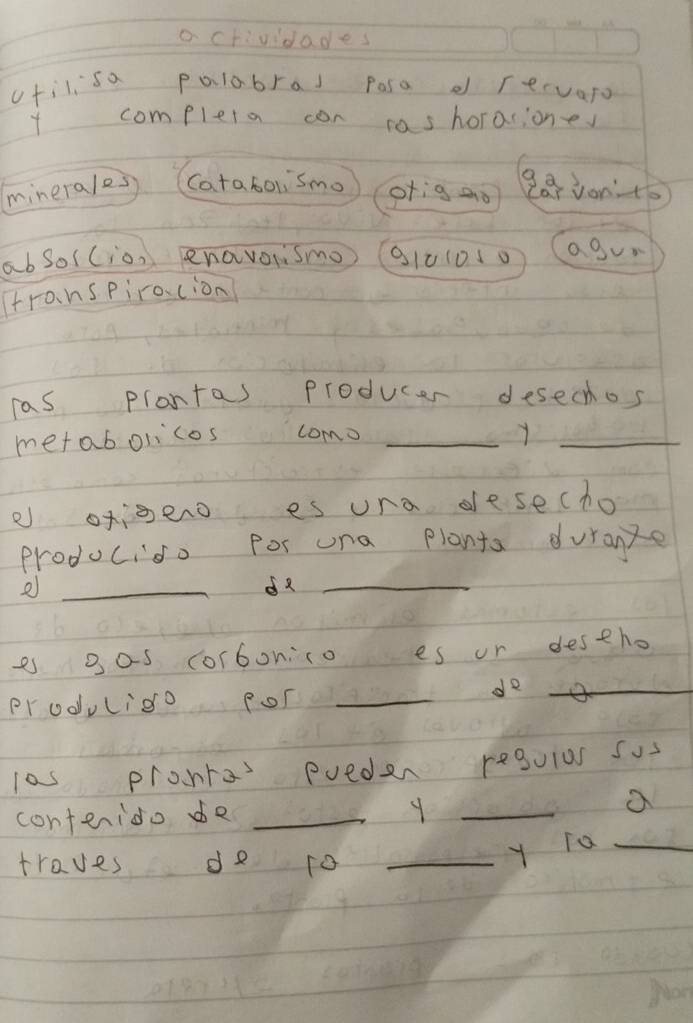 actividades
utilisa palabras para el recuaro
y completa con las horaciones
minerales catabolismo oxigeno gas carvonico
absorcion enavolismo glocoso agua
transpiracion
las plantas producen desechos
metabolicos como ______ y ______
el oxigeno es una desecho
producido por una planta durante
el ______ de ______
es gas carbonico es un deseho
producido por ______ de ______
las plantas pueden regular sus
contenido de ______ y ______ a
traves de la ______ y la ______